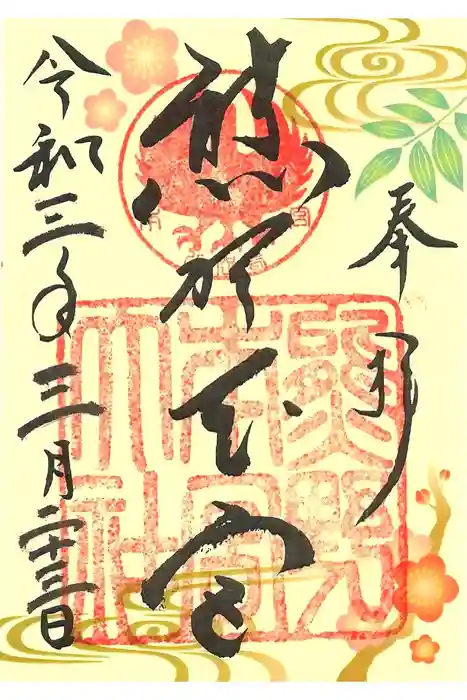 奉拝
熊野本宮
令和三年三月二十三日
熊野
本宮
大社